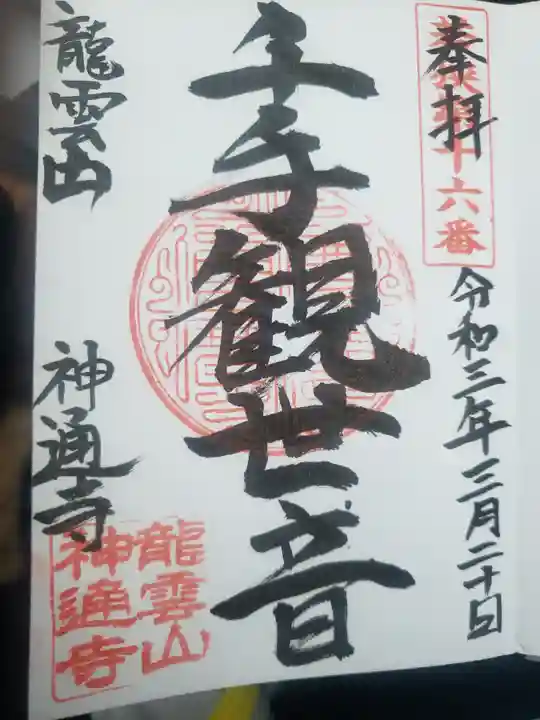 奉拝
十六番
令和三年三月二十日
千手観世音
龍雲山
神通寺
龍雲山
神通寺